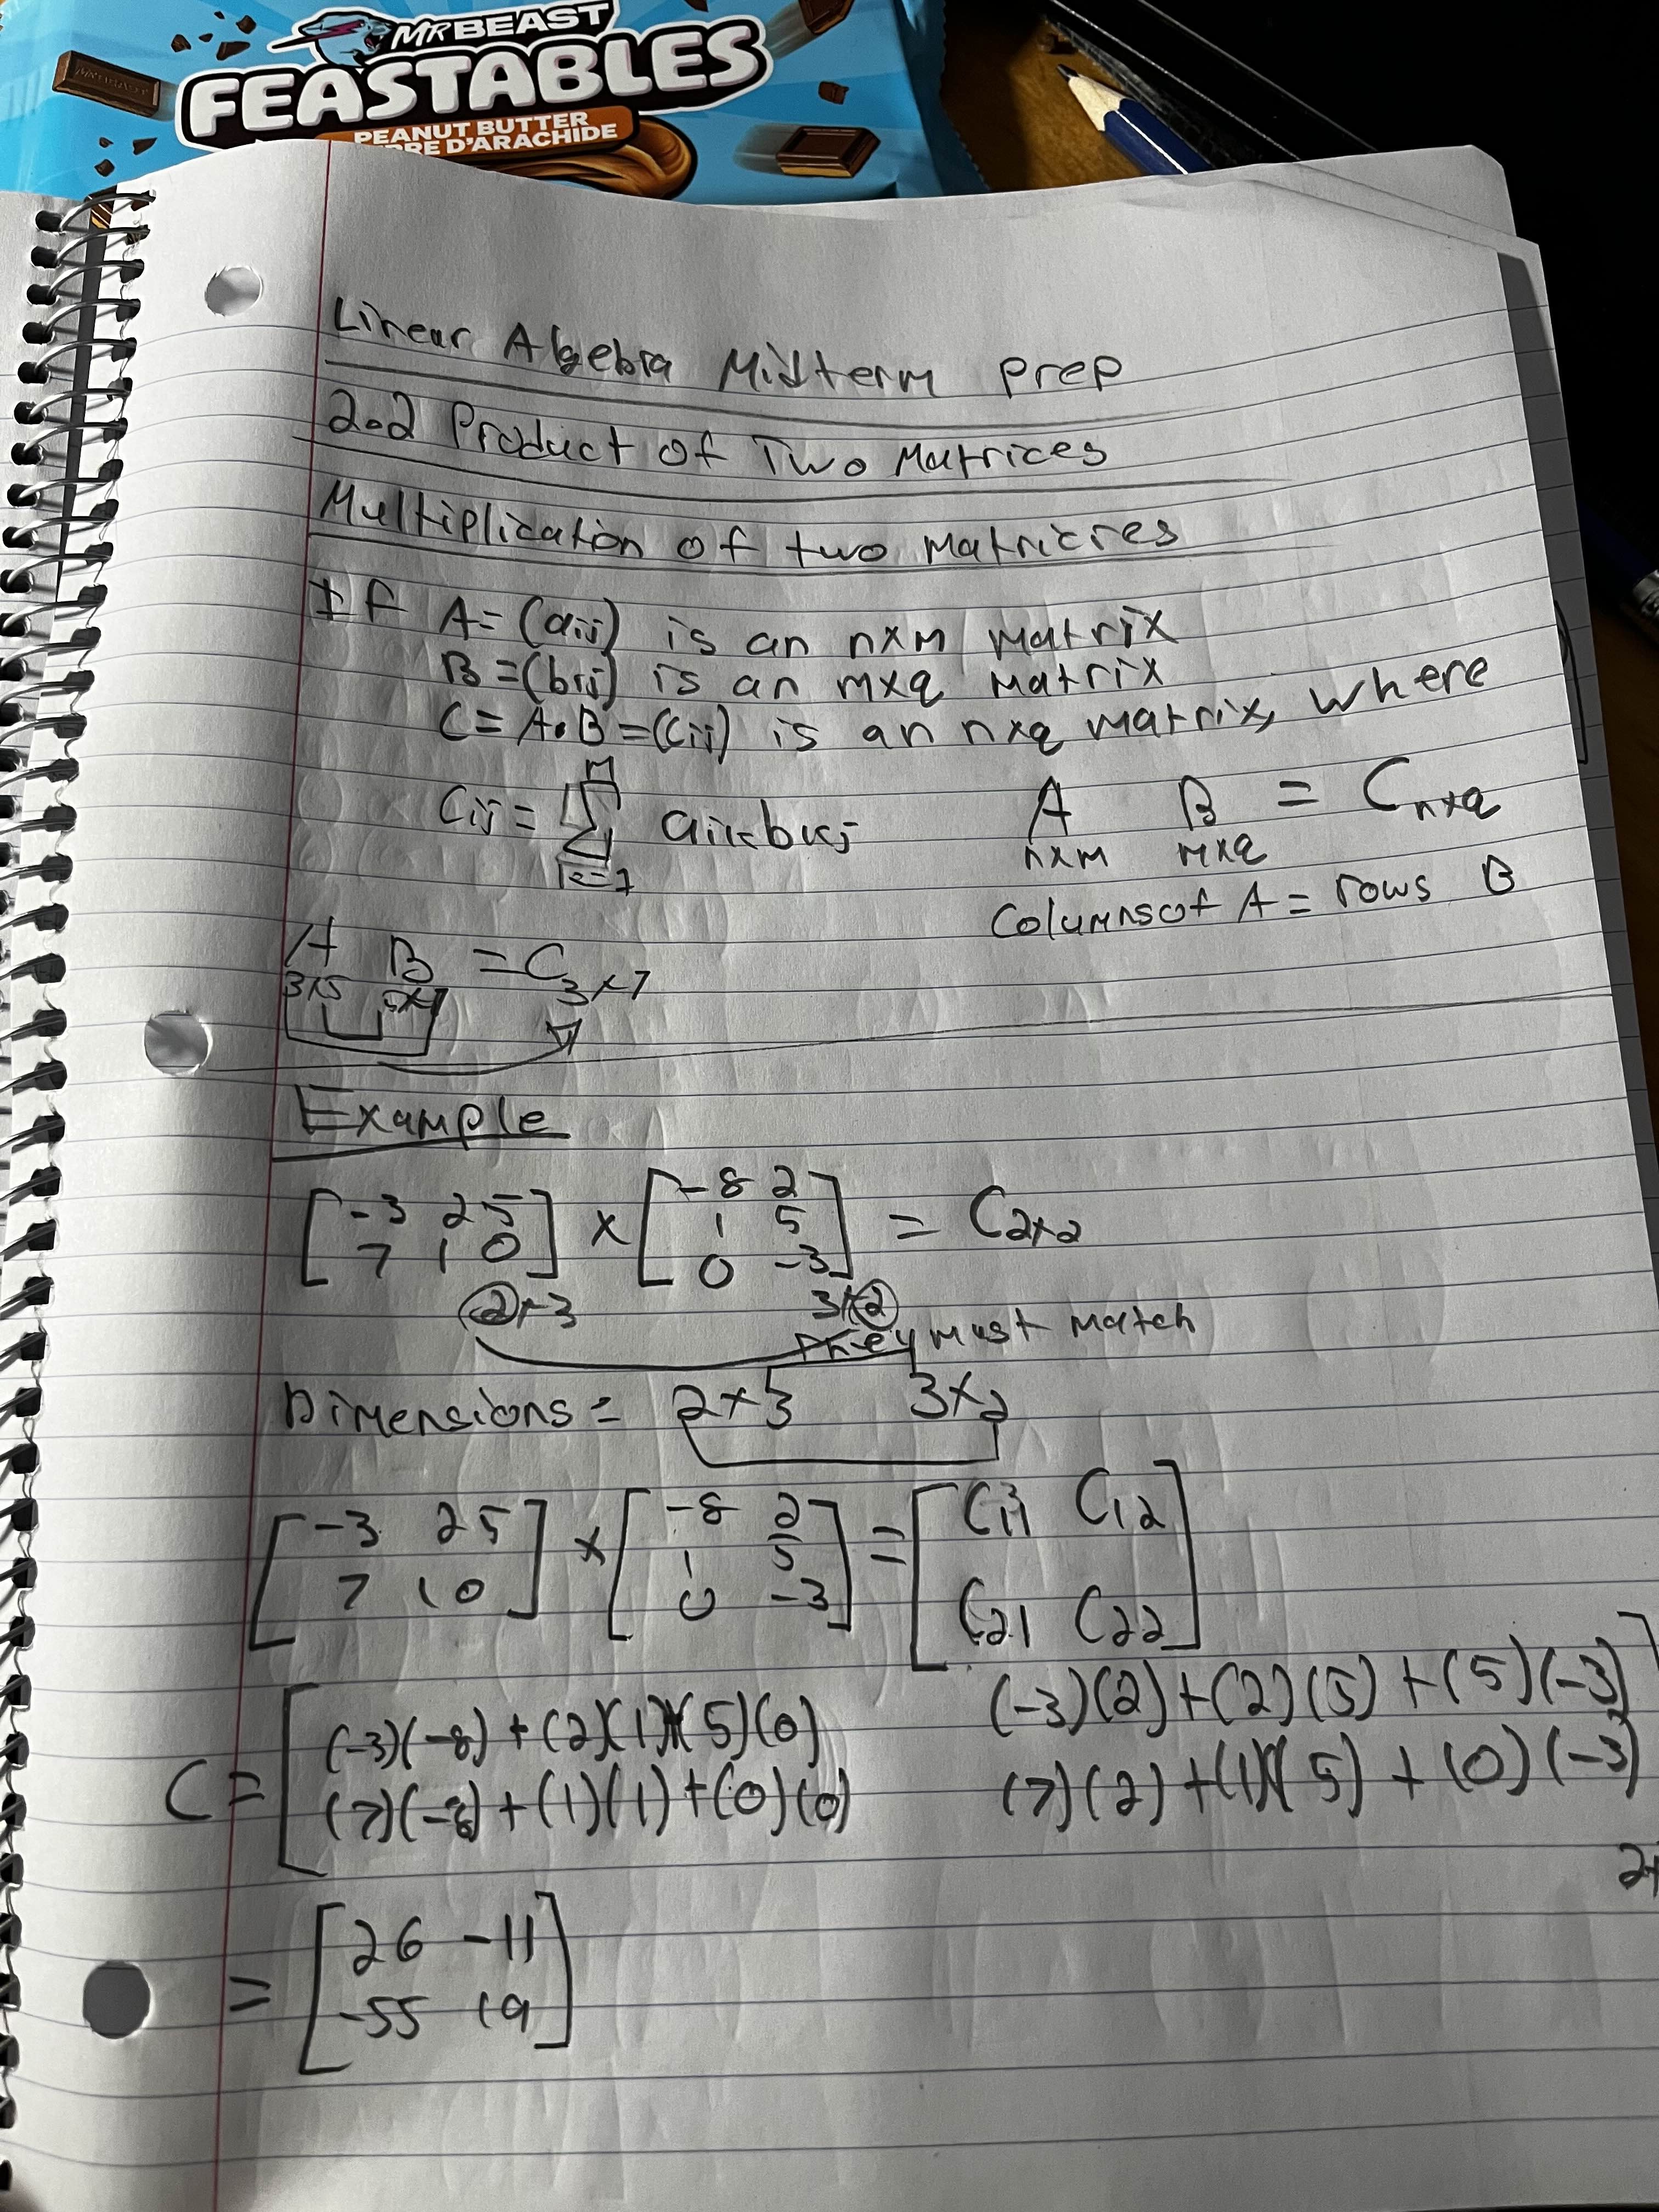 MRBEAST
FEASTABLES
PEANUT BUTTER
RRE D'ARACHIDE
Linear Algebra Midterm prep
2.2 Product of Two Matrices
Multiplication of two matricres
If A = (aij) is an nxm matrix
B = (bij) is an mxq matrix
C = A•B = (cij) is an nxq matrix, where
Cij = Σ aikbkj
M
k=1
A B = Cnxq
nxm mxq
Columns of A = rows B
A B = C3x7
3x5 5x7
Example
[-3 2 5] x [-8 2] = C2x2
[7 1 0] [1 5]
[0 -3]
2x3 3x2
they must match
Dimensions = 2x3 3x2
[-3 2 5] x [-8 2] = [C11 C12]
[7 1 0] [1 5]
[0 -3] [C21 C22]
C = [(-3)(-8) + (2)(1)+(5)(0) (-3)(2)+(2)(5)+(5)(-3)]
[(7)(-8) + (1)(1) + (0)(0) (7)(2)+(1)(5) + (0)(-3)]
= [26 -11]
[-55 19]